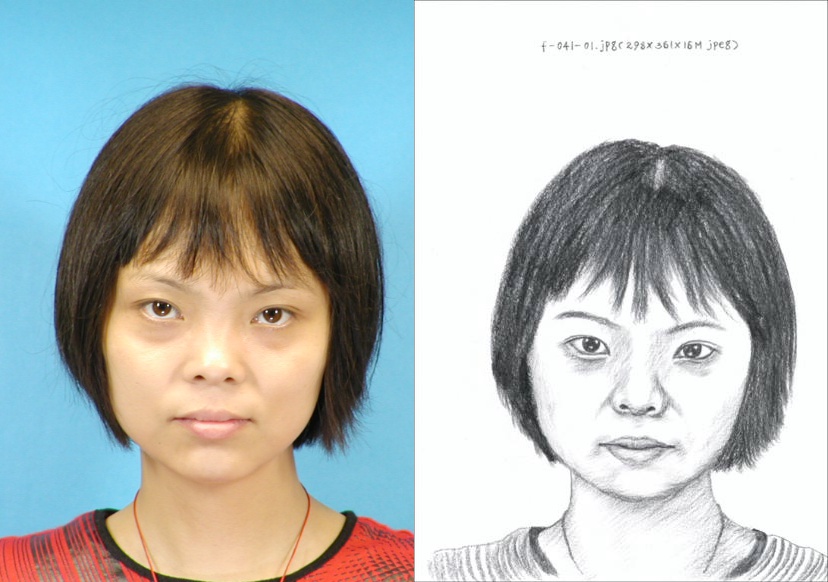 f-041-01.jpg(298×361×16M jpeg)